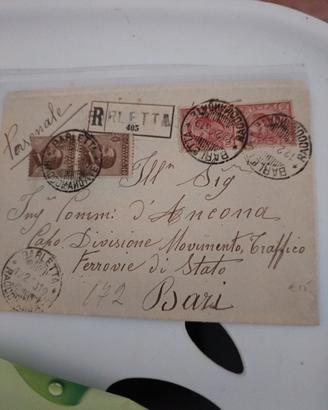 Personale
R
BARLETTA
405
BARLETTA
RACCOMANDATE
BARLETTA
RACCOMANDATE
BARLETTA
RACCOMANDATE
Ill.mo Sig
Ing. Comm. d'Ancona
Capo Divisione Movimento, Traffico
Ferrovie di Stato
Bari
172
BARLETTA
€15